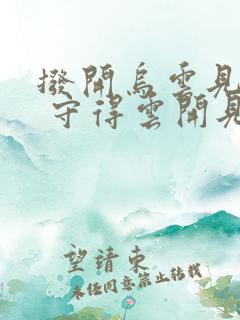 撥開烏雲見
守得雲開見
望靖東
未經同意禁止轉載